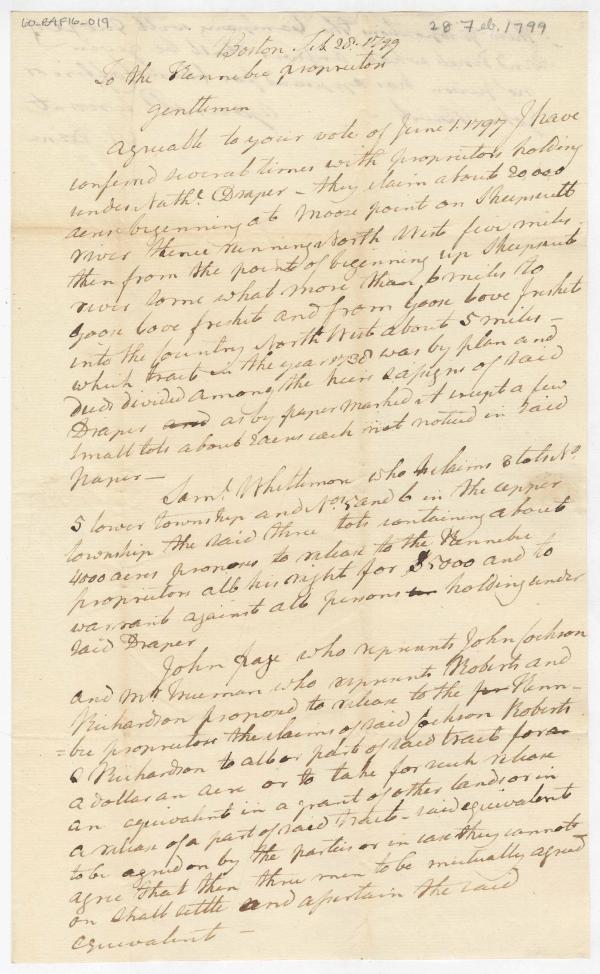 60-R4F16-019
28 Feb. 1799
Boston Feb. 28. 1799
To the Kennebec proprietors
gentlemen
Agreeable to your vote of June 1. 1797 I have
conferred several times with proprietors holding
under Nathl. Draper - they claim about 20000
acres beginning at Moose point on Sheepscutt
river thence running North West five miles
then from the point of beginning up Sheepscut
river some what more than 6 miles to
Goose Cove freshit and from Goose Cove freshit
into the Country North West about 5 miles -
which tract in the year 1738 was by plan and
deeds divided among the heirs & assigns of said
Draper as by paper marked A except a few
small lots about 2 acres each not noticed in said
paper -
Saml. Whittemore who claims 3 lots No.
5 lower township and Nos. 5 and 6 in the upper
township the said three lots containing about
4000 acres proposes to release to the Kennebec
proprietors all his right for $5000 and to
warrant against all persons holding under
said Draper
John Gaze who represents John Jockson
and Mr. Freeman who represents Roberts and
Richardson proposed to release to the Kenne-
=bec proprietors the claims of said Jockson Roberts
& Richardson to all or part of said tract for
a dollar an acre or to take for such release
an equivalent in a grant of other lands or in
a release of a part of said tract - said equivalent
to be agreed on by the parties or in case they cannot
agree that then three men to be mutually agreed
on shall settle and ascertain the said
equivalent -